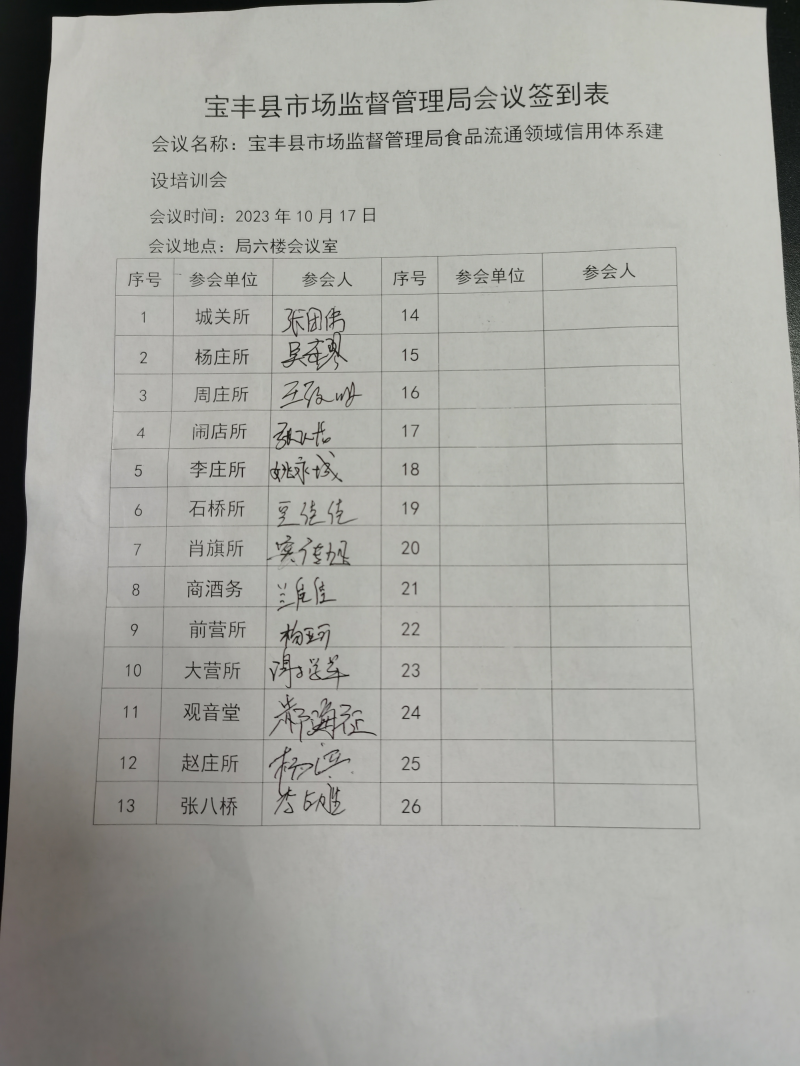 宝丰县市场监督管理局会议签到表
会议名称：宝丰县市场监督管理局食品流通领域信用体系建
设培训会
会议时间：2023 年 10 月 17 日
会议地点：局六楼会议室
序号 参会单位 参会人 序号 参会单位 参会人
1 城关所 张团伟 14
2 杨庄所 15
3 周庄所 16
4 闹店所 17
5 李庄所 姚永城 18
6 石桥所 豆佳佳 19
7 肖旗所 20
8 商酒务 兰佳佳 21
9 前营所 杨珂 22
10 大营所 23
11 观音堂 24
12 赵庄所 25
13 张八桥 26